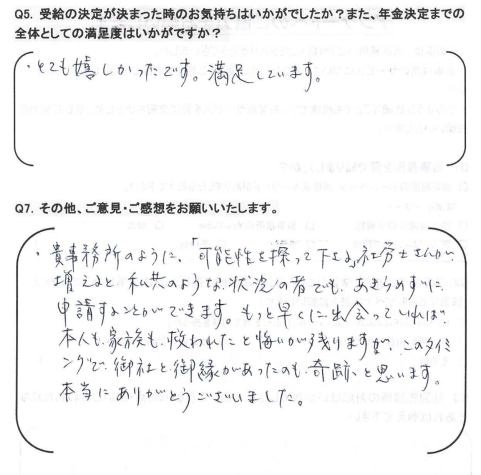 Q5. 受給の決定が決まった時のお気持ちはいかがでしたか？また、年金決定までの
全体としての満足度はいかがですか？
・とても嬉しかったです。満足しています。
Q7. その他、ご意見・ご感想をお願いいたします。
・貴事務所のように、「可能性を探って下さる」社労士さんが、
増えると私共のような状況の者でも、あきらめずに
申請することができます。もっと早くに出会っていれば
本人も、家族も、救われたと悔いが残りますが、このタイミ
ングで、御社と御縁があったのも、奇跡、と思います。
本当にありがとうございました。